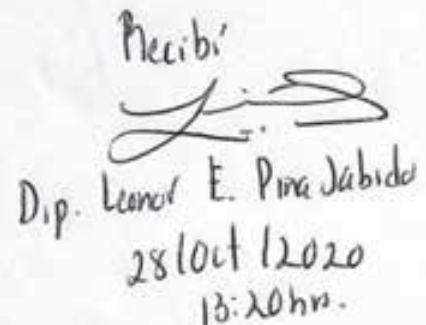 Recibí
Dip. Leonor E. Piña Sabido
28/Oct/2020
13:20 hrs.